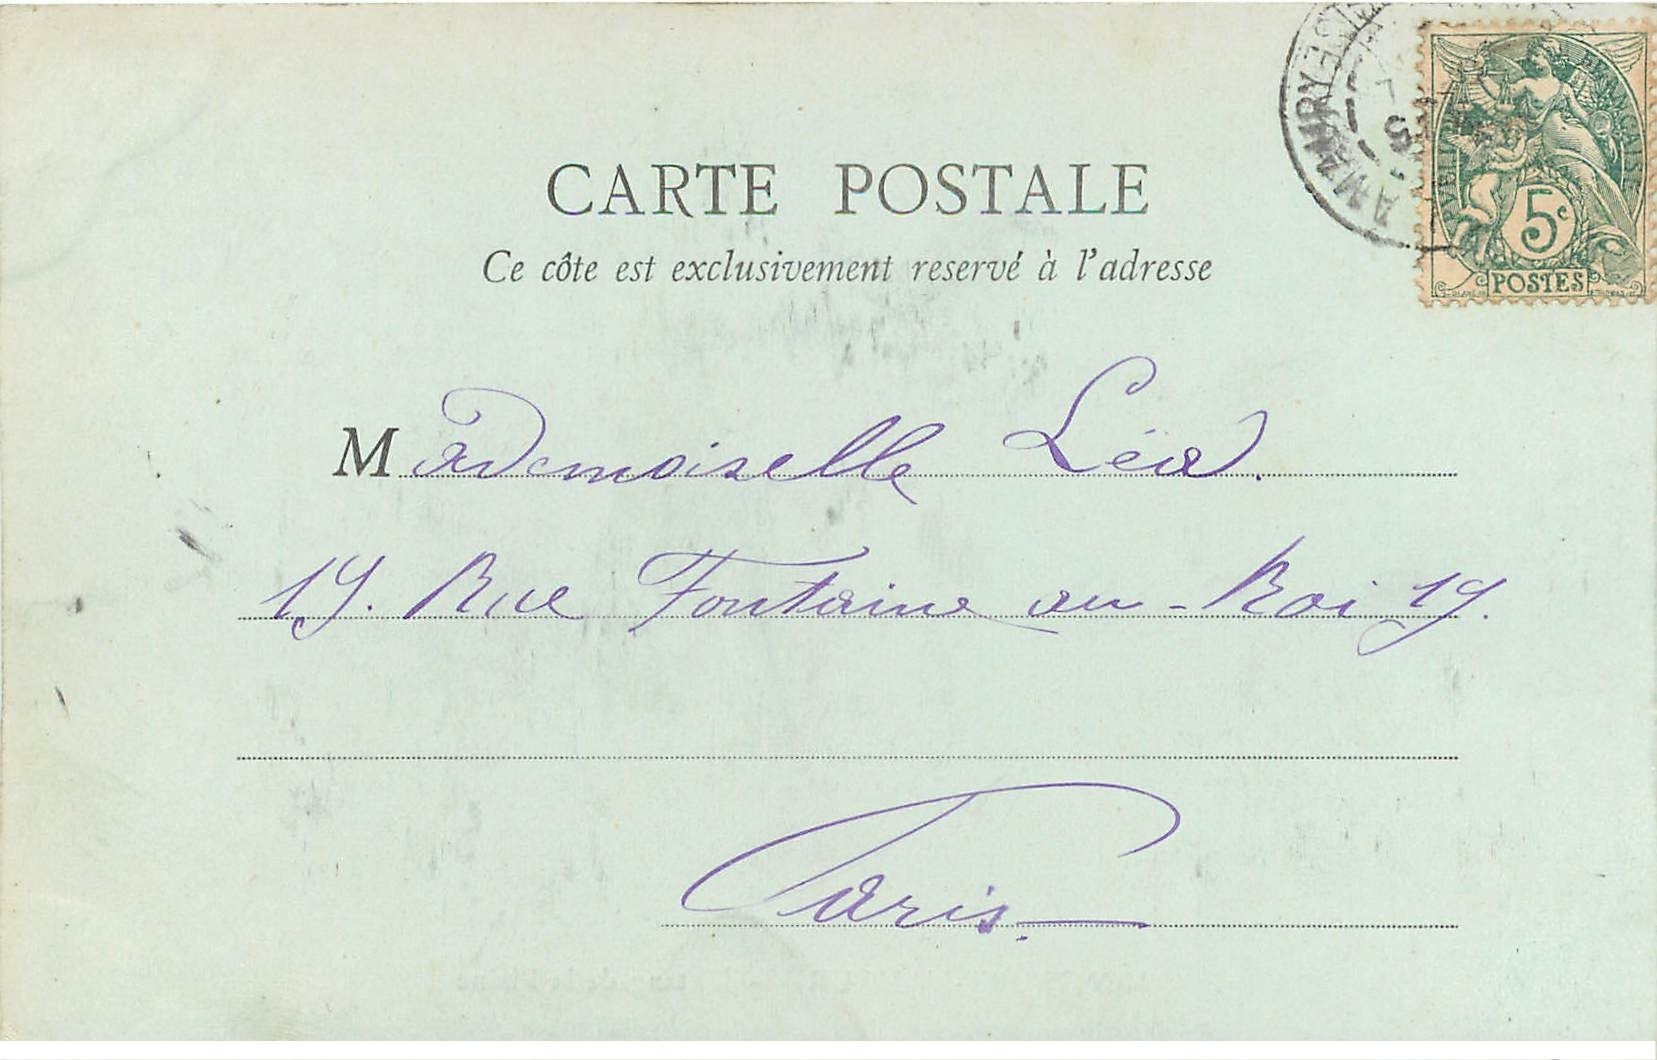 CARTE POSTALE
Ce côte est exclusivement reservé à l'adresse
5c
POSTES
Mademoiselle Léa.
19. Rue Fontaine au-Roi 19.
Paris.